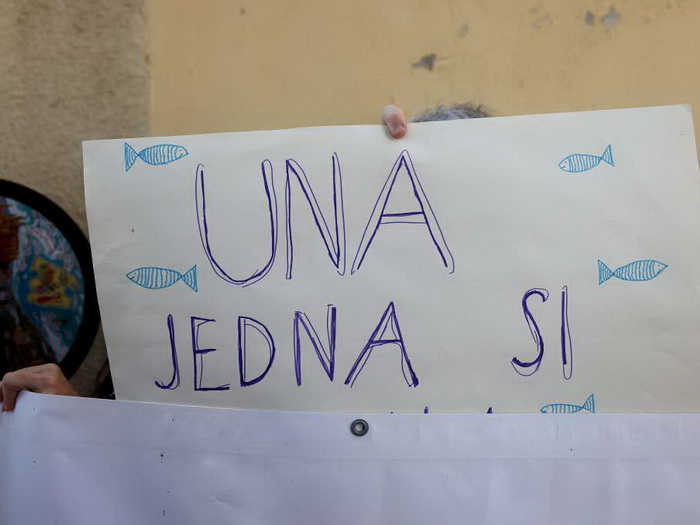 UNA
JEDNA SI